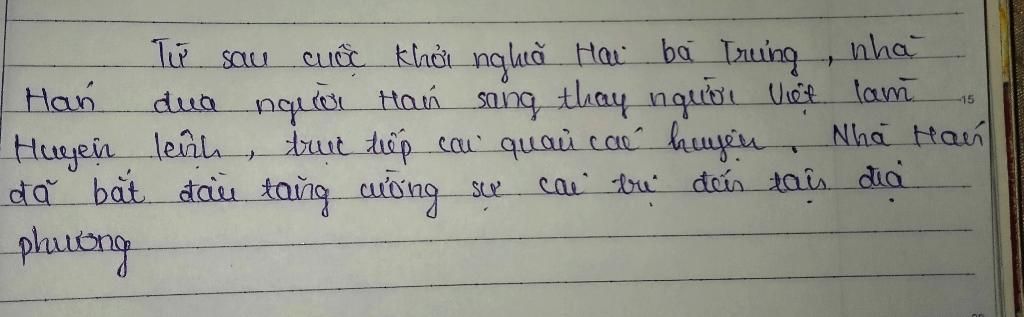 Từ sau cuộc khởi nghĩa Hai bà Trưng, nhà
Hán đưa người Hán sang thay người Việt làm
Huyện lệnh, trực tiếp cai quản các huyện. Nhà Hán
đã bắt đầu tăng cường sự cai trị đến tận địa
phương
15